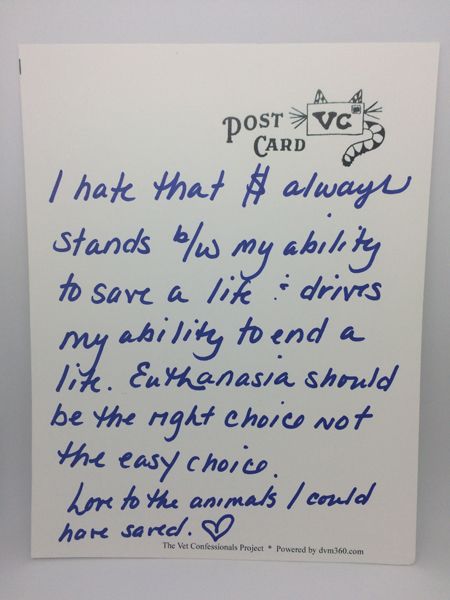 POST CARD
VC
I hate that $ always
stands b/w my ability
to save a life & drives
my ability to end a
life. Euthanasia should
be the right choice not
the easy choice.
Love to the animals I could
have saved. ♡
The Vet Confessionals Project * Powered by dvm360.com